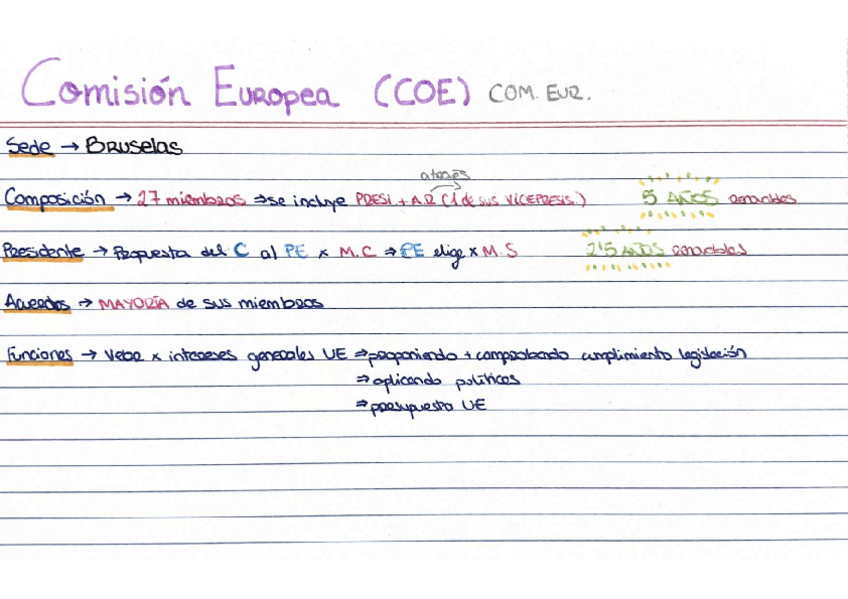 Comisión Europea (COE) COM. EUR.
Sede → Bruselas
Composición → 27 miembros ⇒ se incluye PRESI + A.R (1 de sus VICEPRESIS.) 5 AÑOS renovables
Presidente → Propuesta del C al PE x M.C ⇒ PE elige x M.S 2'5 AÑOS renovables
Acuerdos → MAYORÍA de sus miembros
Funciones → Velar x intereses generales UE ⇒ proponiendo + comprobando cumplimiento legislación
⇒ aplicando políticas
⇒ presupuesto UE